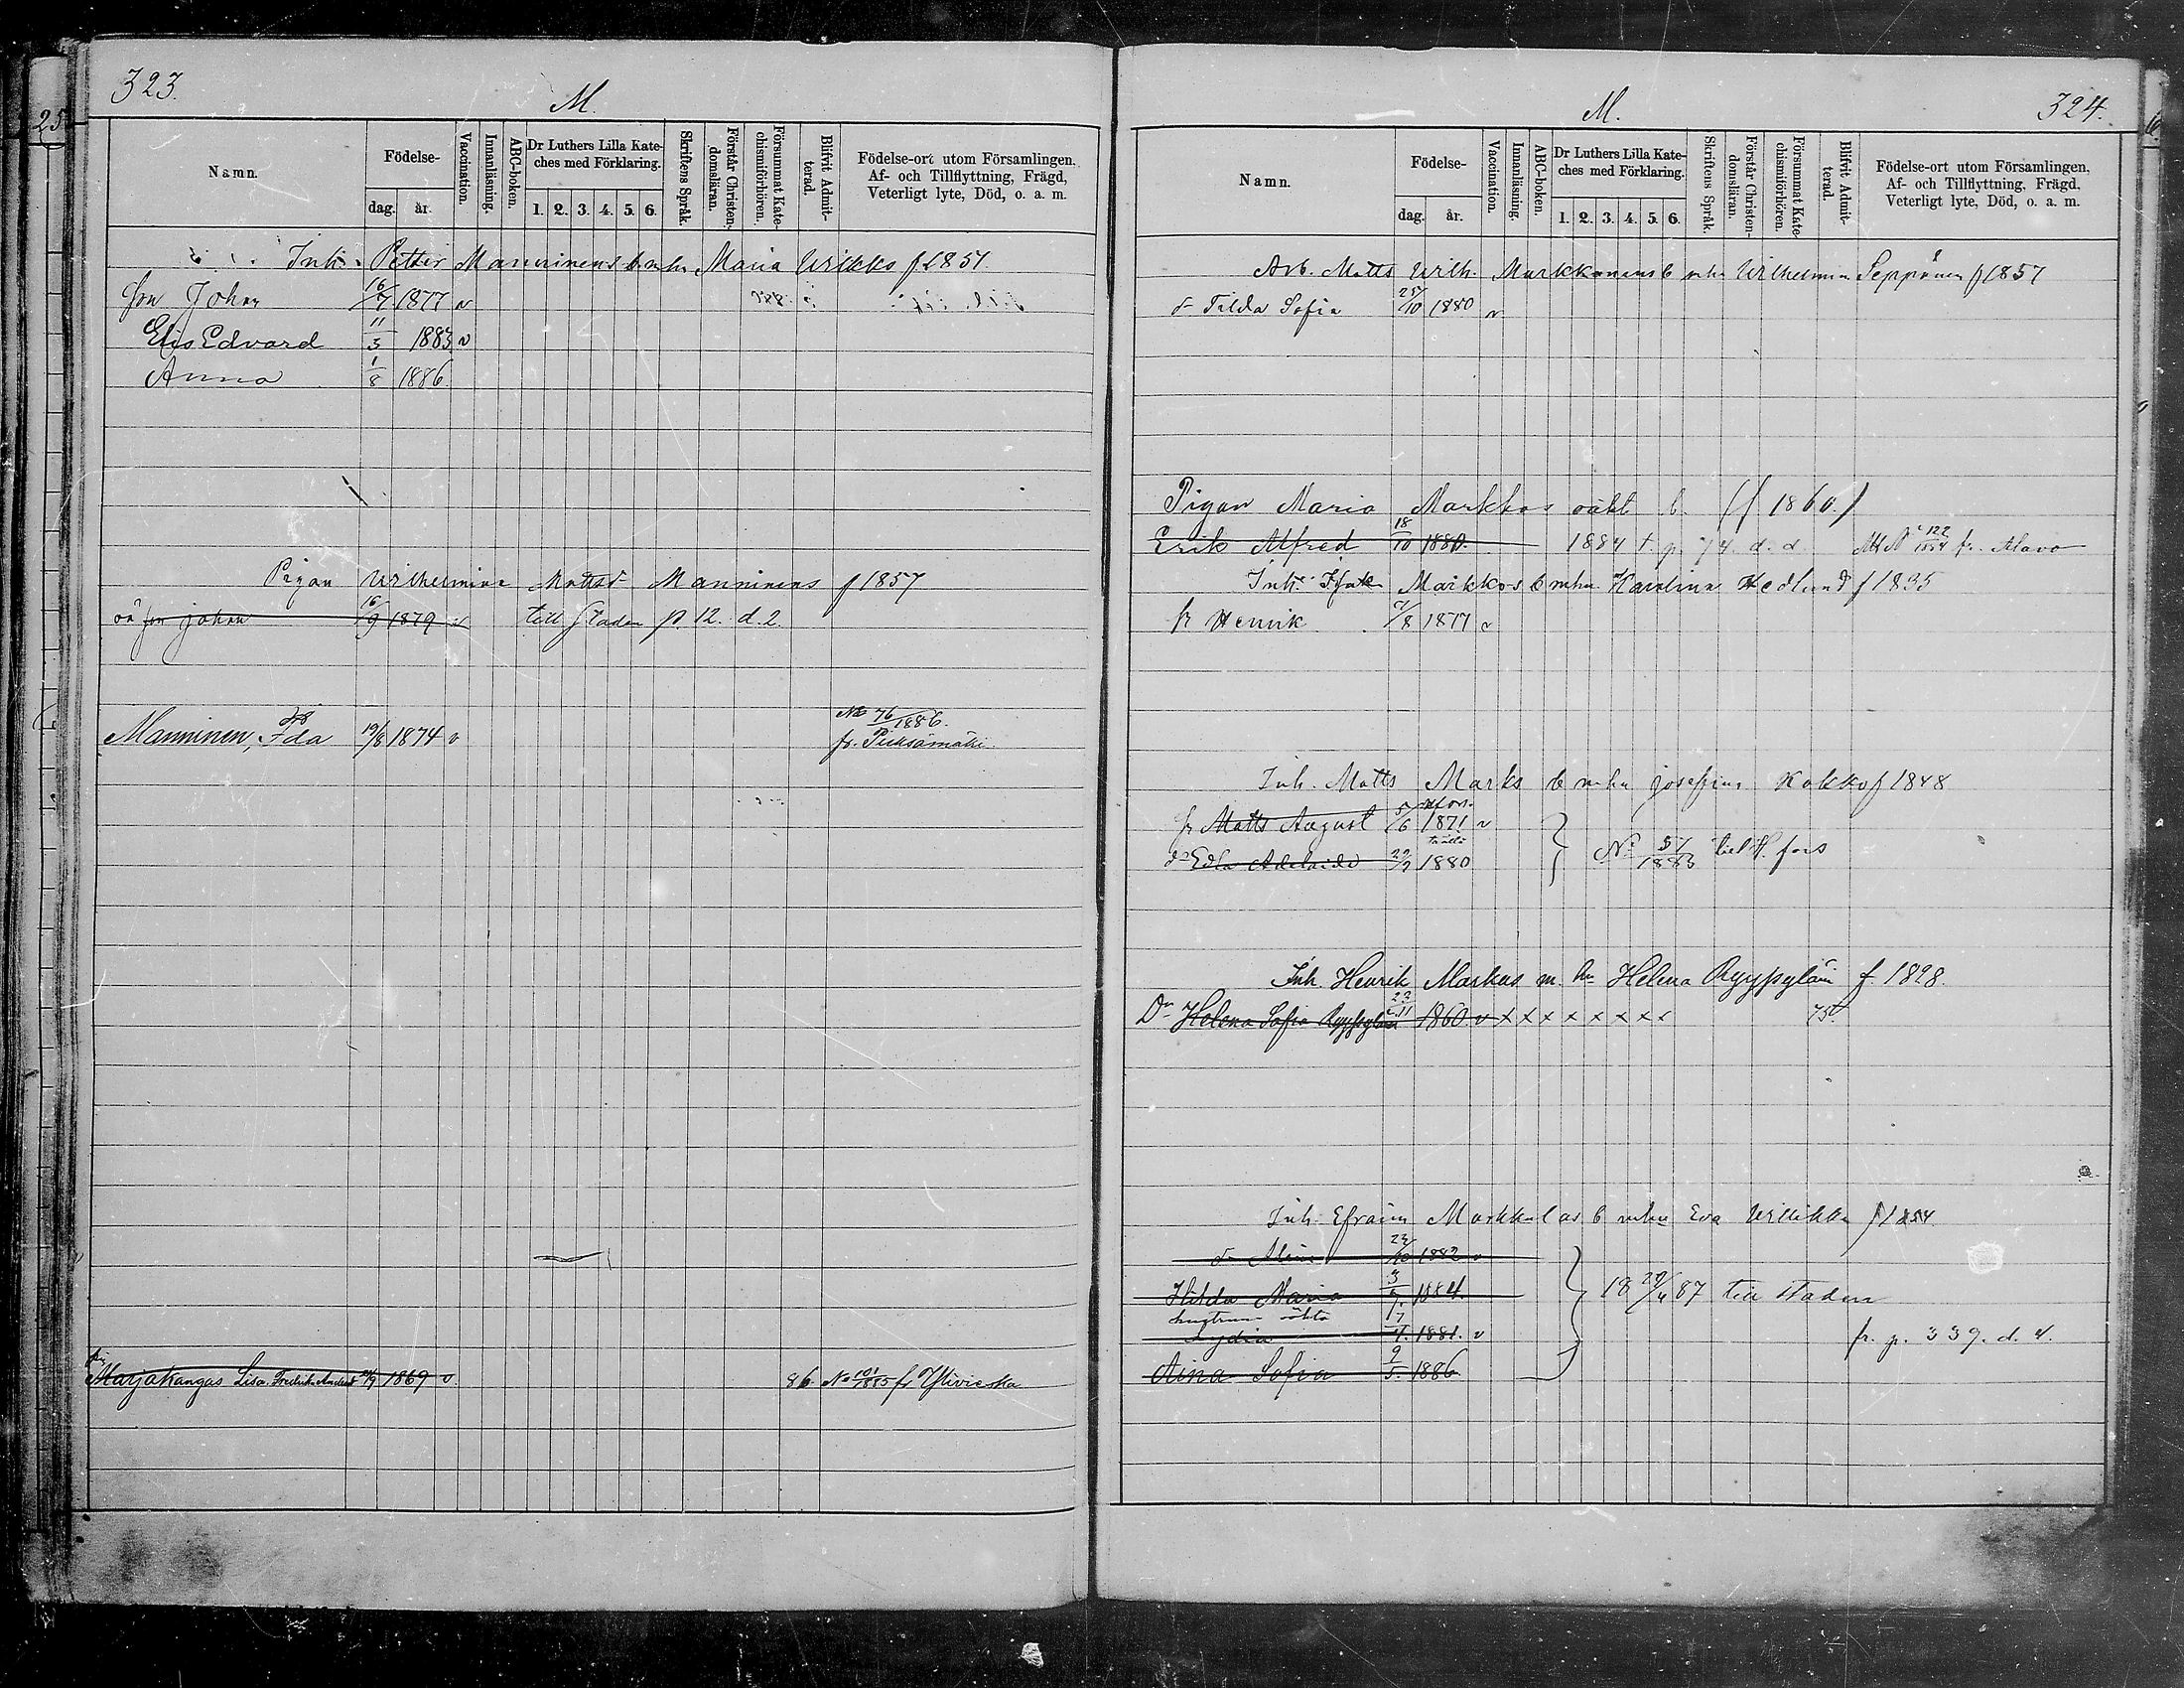 323.
M.
Namn.
Födelse-
dag.
år.
Vaccination.
Innanläsning.
ABC-boken.
Dr Luthers Lilla Kate-
ches med Förklaring.
1. 2. 3. 4. 5. 6.
Skriftens Språk.
Förstår Christen-
domsläran.
Försummat Kate-
chismiförhören.
Blifvit Admit-
terad.
Födelse-ort utom Församlingen.
Af- och Tillflyttning, Frägd,
Veterligt lyte, Död, o. a. m.
Inh. Petter Manninens b. m. hu Maria f 1851
son Johan 16/7 1877 v
Elis Edvard 11/3 1883 v
Anna 1/8 1886.
Pigan Wilhelmina Mattsd. Manninens f 1857
oä son Johan 16/9 1879 v till staden p. 12. d. 2.
Manninen, Ida 19/8 1874 v
No 76/1886.
fr. Pieksämäki.
Marjakangas Lisa 1869 v 86. No 101/1885 fr Ylivieska
M.
324.
Namn.
Födelse-
dag.
år.
Vaccination.
Innanläsning.
ABC-boken.
Dr Luthers Lilla Kate-
ches med Förklaring.
1. 2. 3. 4. 5. 6.
Skriftens Språk.
Förstår Christen-
domsläran.
Försummat Kate-
chismiförhören.
Blifvit Admit-
terad.
Födelse-ort utom Församlingen,
Af- och Tillflyttning, Frägd,
Veterligt lyte, Död, o. a. m.
Arb. Matts Wilh. Markkanens b m hu Wilhelmina Seppänen f 1857
d Tilda Sofia 25/10 1880 v
Pigan Maria Markkos oäkt b. (f 1860.)
Erik Alfred 18/10 1880. 1884 t. p. 74. d. d. No 122/1884 fr. Alavo
Inh. Markkos b m hu Karolina Hedlund f 1835
fr Henrik 7/8 1877 v
Inh. Matts Marks b m hu Josefina Kokko f 1848
fr Matts August 5/6 1871 v
d Edla Adelaide 22/7 1880 No 51/1883 till H. fors
Inh. Henrik Markus m. hu Helena Ryyppyläin f. 1828.
Dr Helena Sofia Ryyppyläin 22/11 1860 v x x x x x x x x 75.
Inh Efraim Markkulas b m hu Eva f 1854
d Alina 22/10 1882 v
Hilda Maria 3/7. 1884. 18 29/4 87 till staden
hustruns oäkta
Lydia 17/4. 1881. v fr. p. 339. d. 4.
Aina Sofia 9/5. 1886